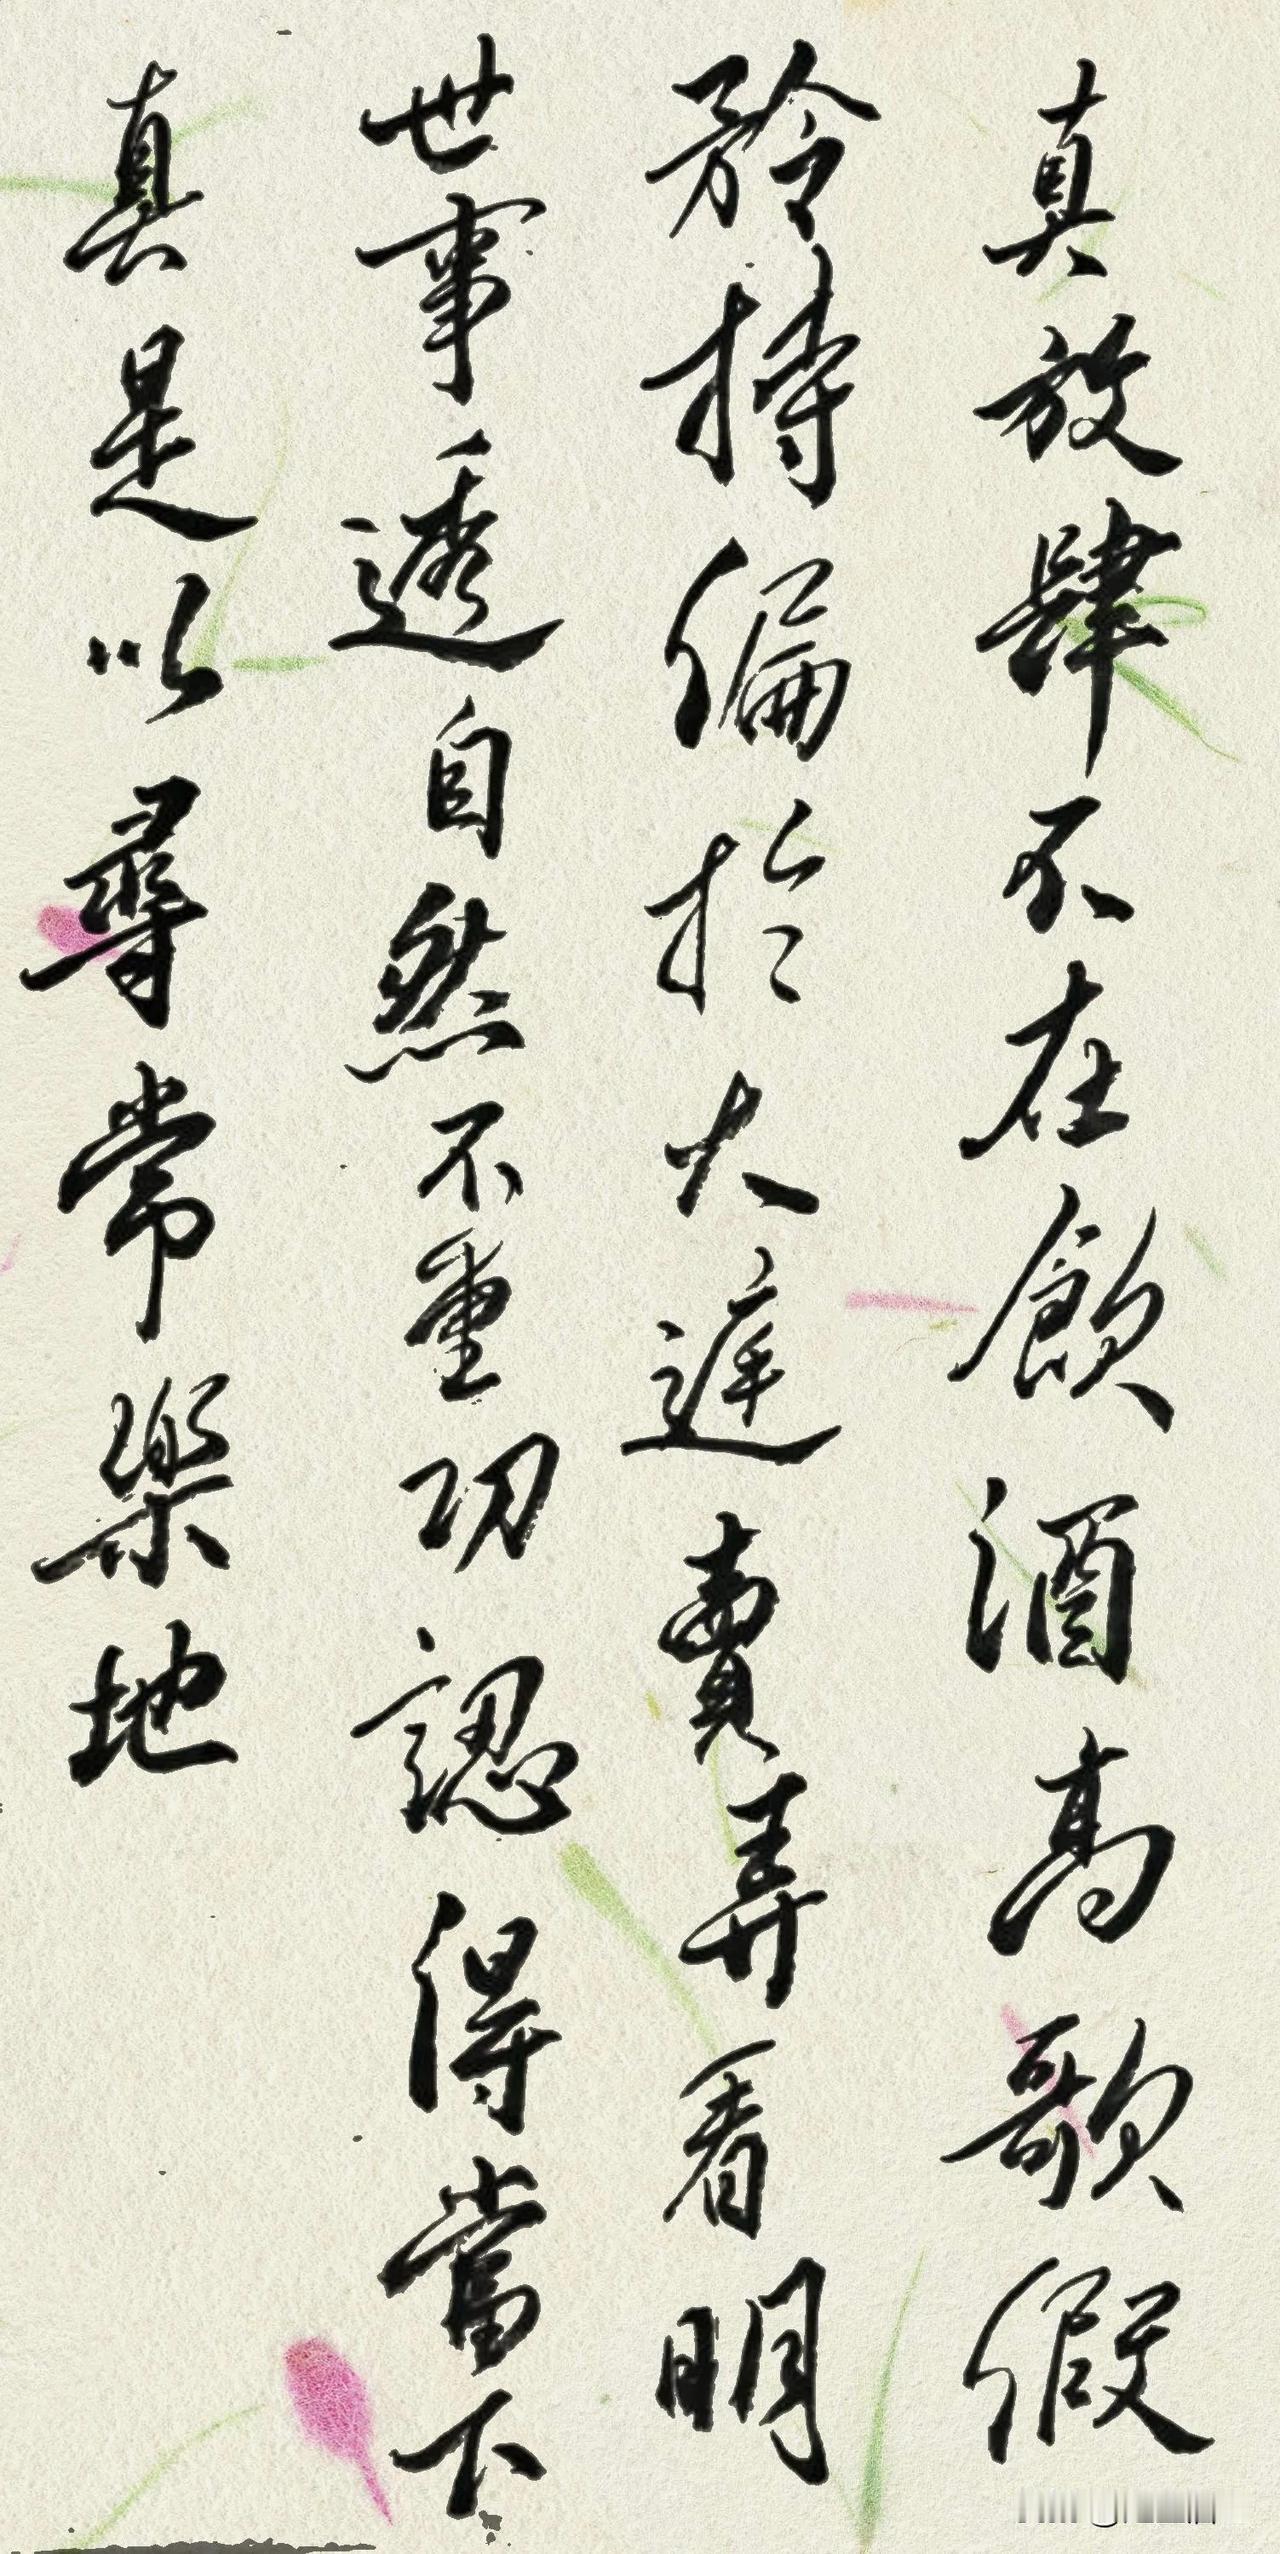 真放肆不在飲酒高歌假
矜持偏於大庭賣弄看明
世事透自然不重功認得當下
真是以尋常樂地